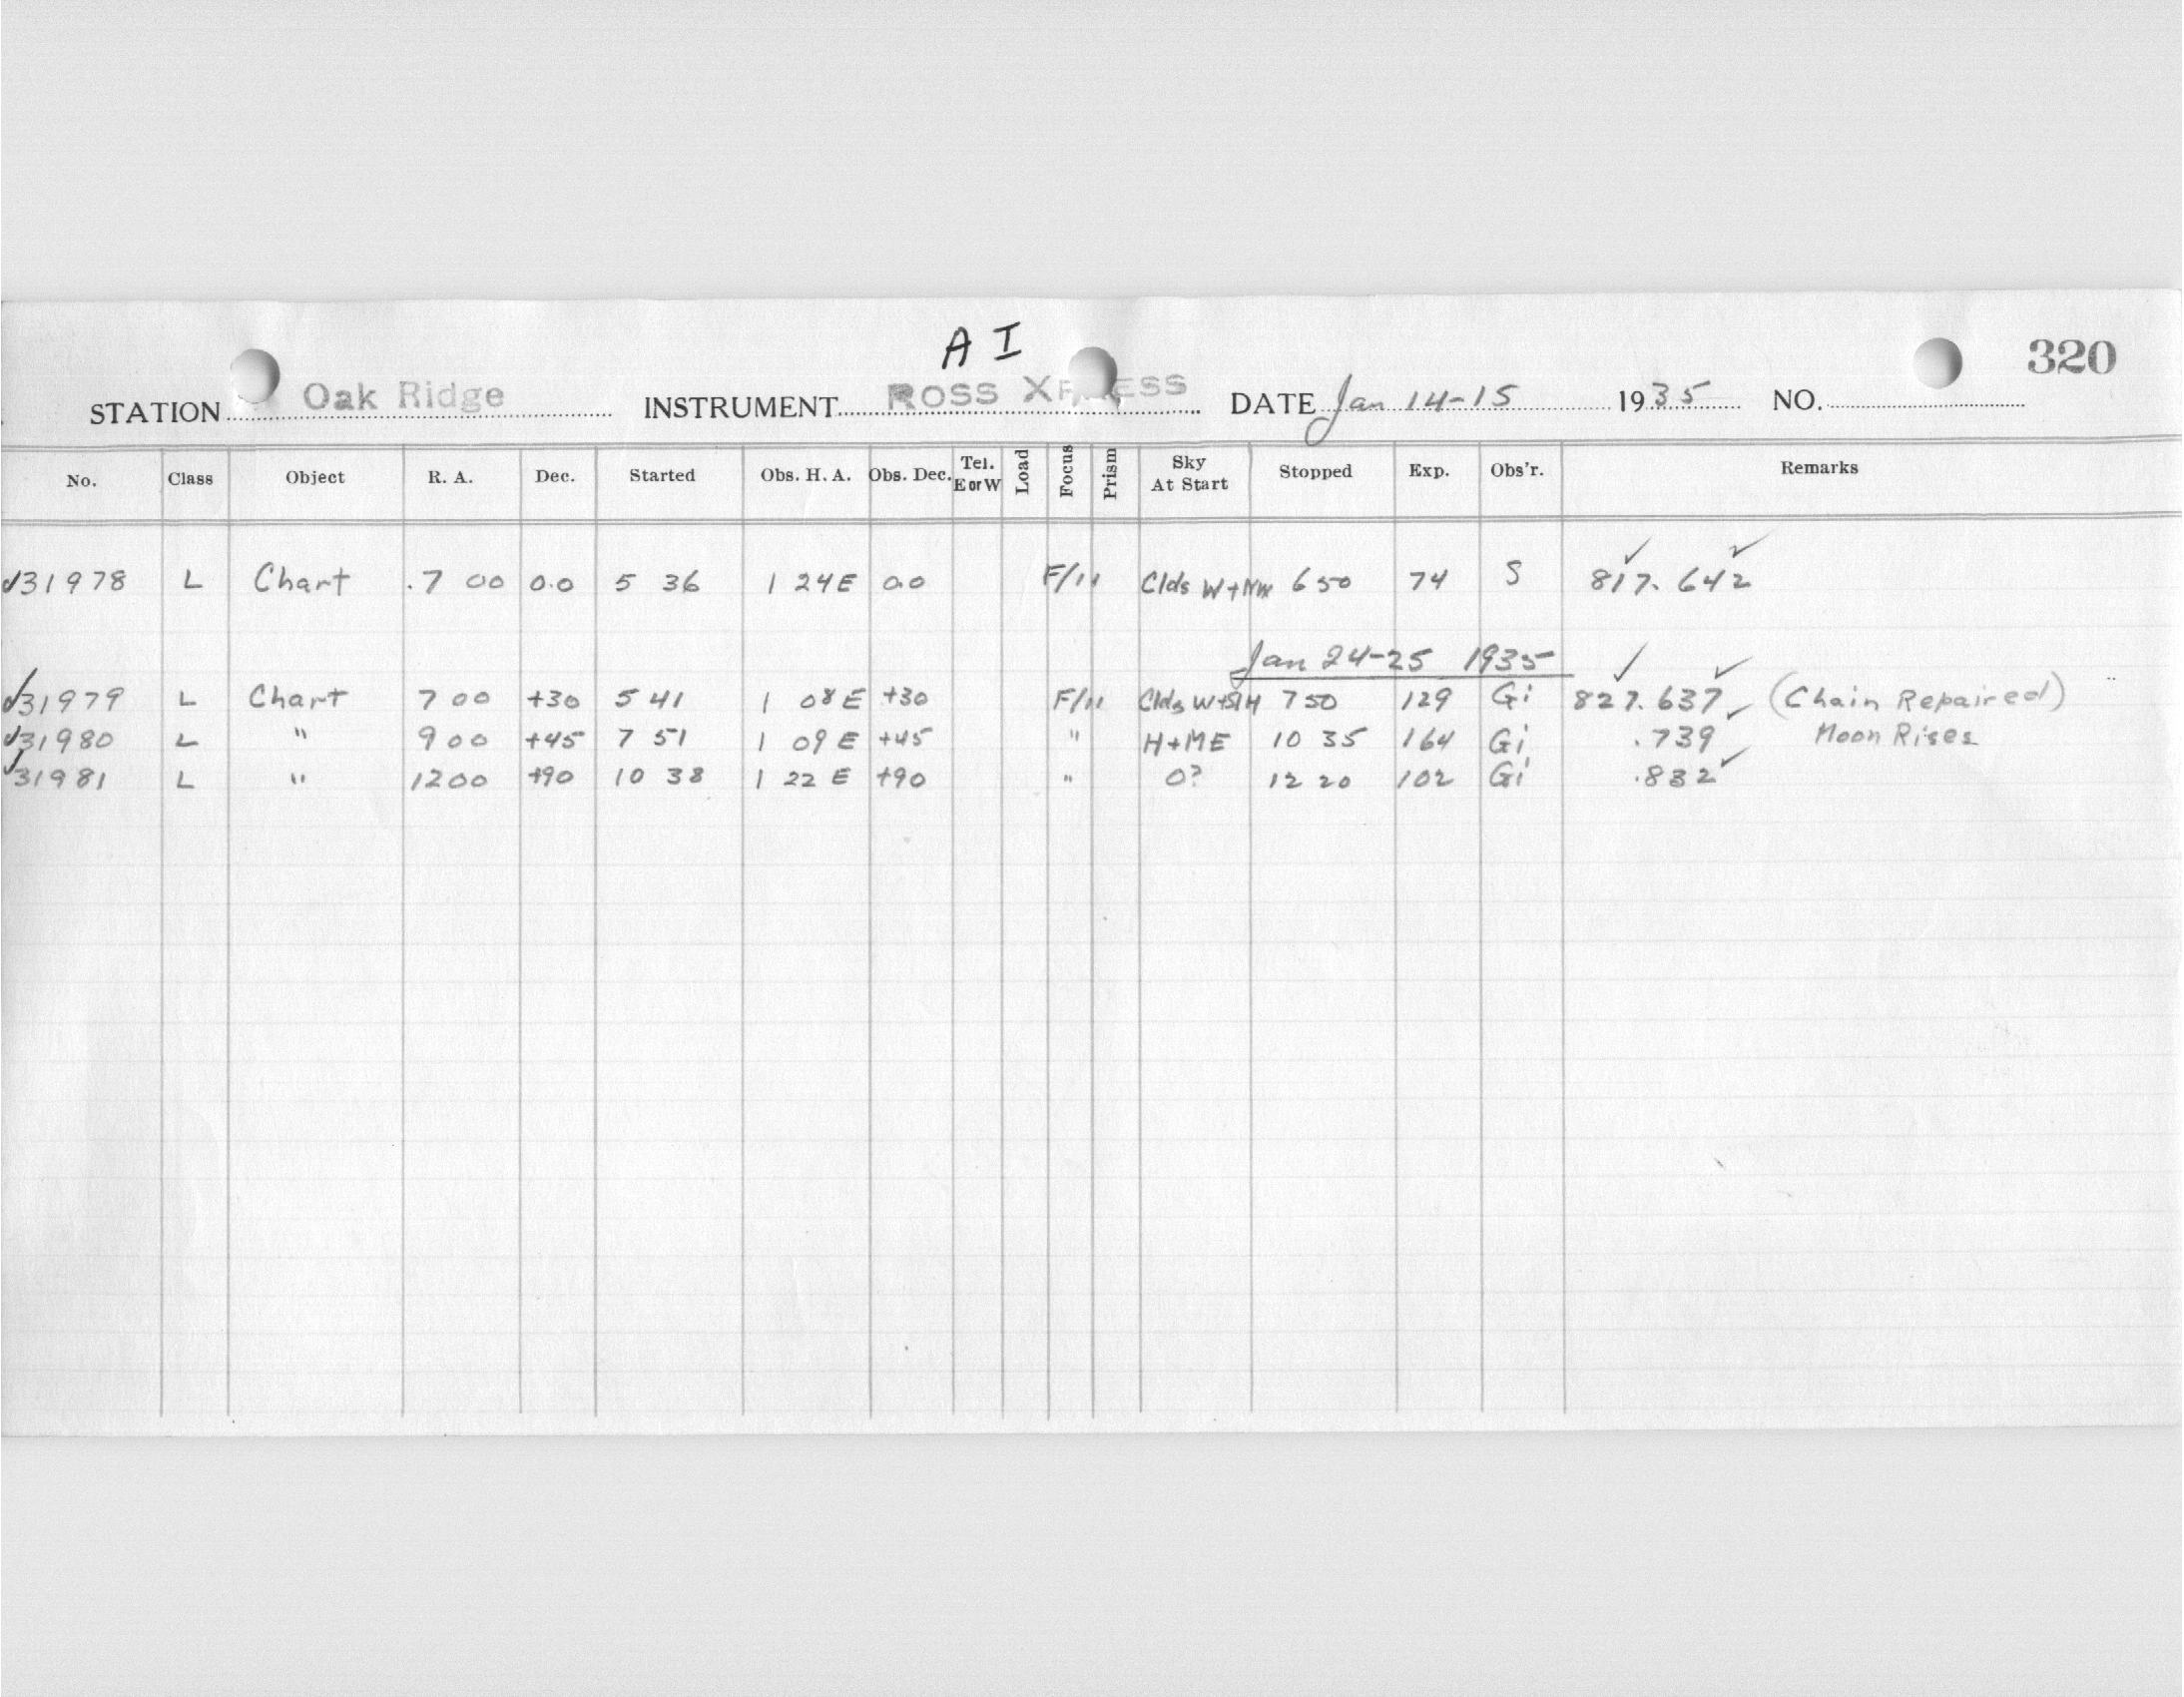 A I
320
STATION Oak Ridge INSTRUMENT ROSS XPRESS DATE Jan 14-15 1935 NO.
No. Class Object R. A. Dec. Started Obs. H. A. Obs. Dec. Tel. E or W Load Focus Prism Sky At Start Stopped Exp. Obs'r. Remarks
√31978 L Chart .7 00 0.0 5 36 1 24E 0.0 F/11 Clds W+NW 6 50 74 S 817.642
Jan 24-25 1935
√31979 L Chart 7 00 +30 5 41 1 08E +30 F/11 Clds W+ 7 50 129 Gi 827.637 (Chain Repaired)
√31980 L " 9 00 +45 7 51 1 09E +45 " 10 35 164 Gi .739 Moon Rises
√31981 L " 12 00 +90 10 38 1 22 E +90 " 0? 12 20 102 Gi .832